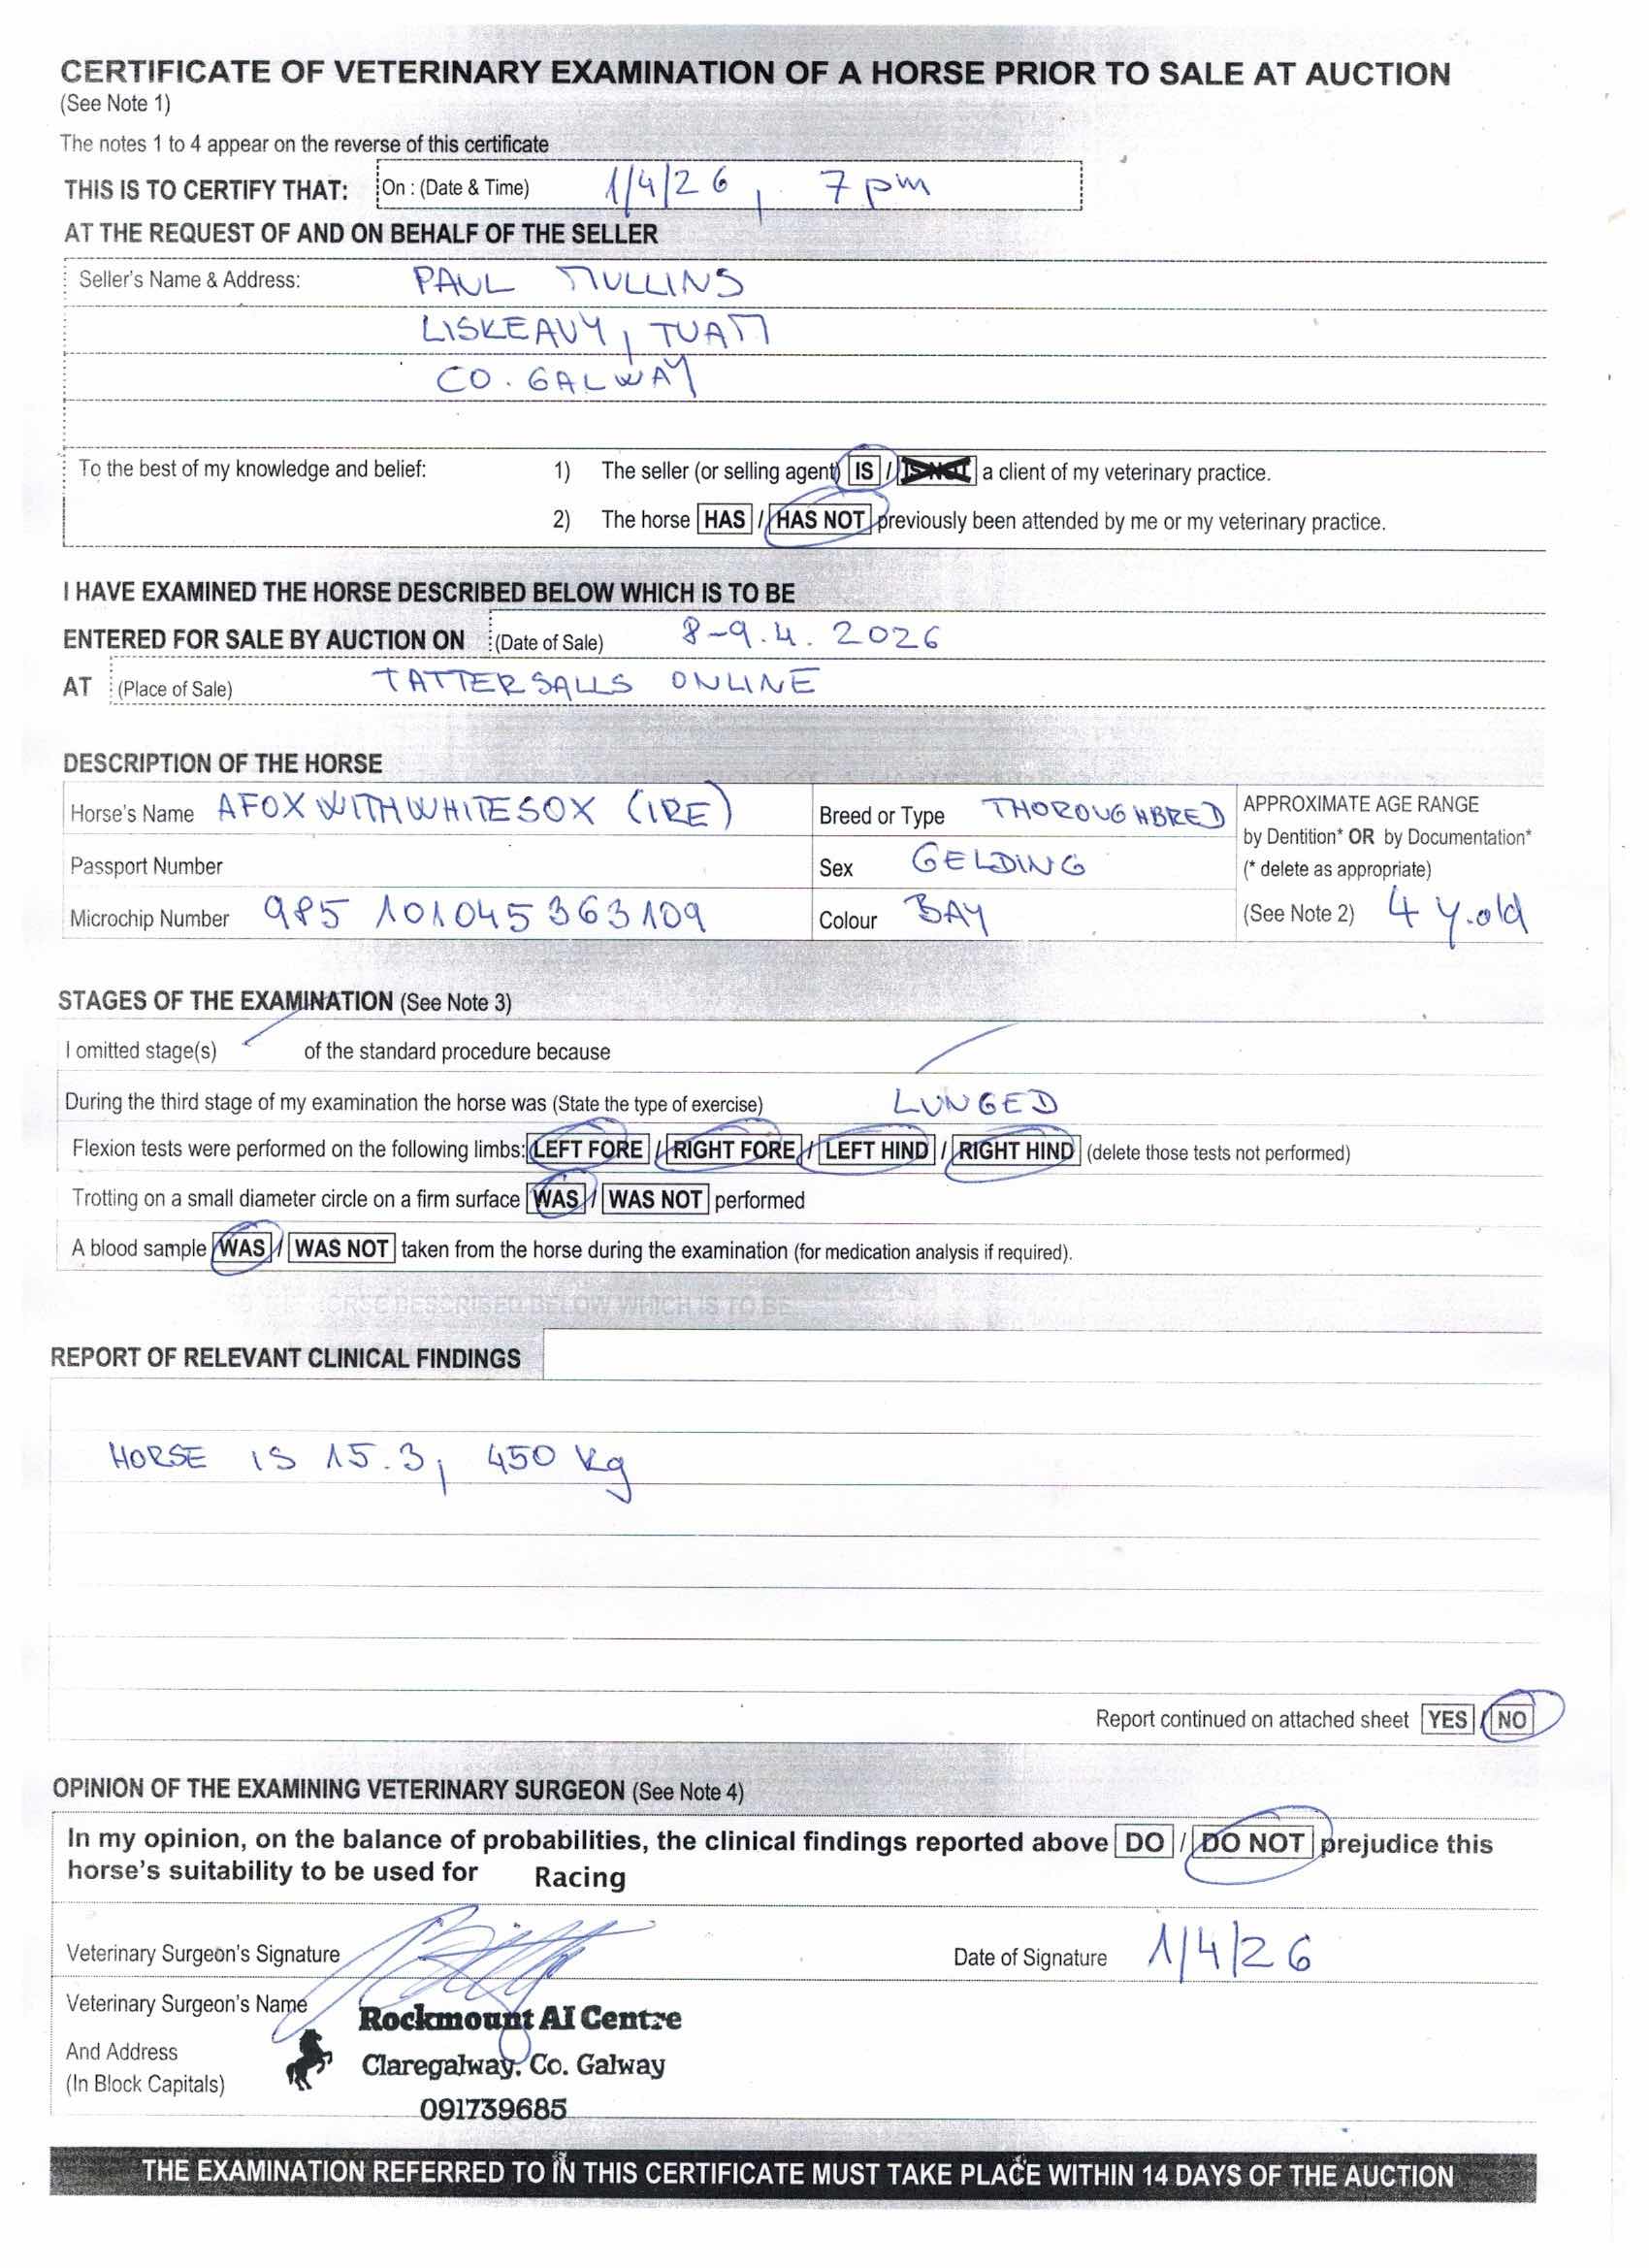 CERTIFICATE OF VETERINARY EXAMINATION OF A HORSE PRIOR TO SALE AT AUCTION
(See Note 1)
The notes 1 to 4 appear on the reverse of this certificate
THIS IS TO CERTIFY THAT: On : (Date & Time) 1/4/26, 7pm
AT THE REQUEST OF AND ON BEHALF OF THE SELLER
Seller's Name & Address: PAUL MULLINS
LISKEAVY, TUAM
CO. GALWAY
To the best of my knowledge and belief: 1) The seller (or selling agent) IS / IS NOT a client of my veterinary practice.
2) The horse HAS / HAS NOT previously been attended by me or my veterinary practice.
I HAVE EXAMINED THE HORSE DESCRIBED BELOW WHICH IS TO BE
ENTERED FOR SALE BY AUCTION ON (Date of Sale) 8-9.4.2026
AT (Place of Sale) TATTERSALLS ONLINE
DESCRIPTION OF THE HORSE
Horse's Name AFOXWITHWHITESOX (IRE) Breed or Type THOROUGHBRED APPROXIMATE AGE RANGE
by Dentition* OR by Documentation*
Passport Number Sex GELDING (* delete as appropriate)
Microchip Number 985 101045363109 Colour BAY (See Note 2) 4 y.old
STAGES OF THE EXAMINATION (See Note 3)
I omitted stage(s) / of the standard procedure because /
During the third stage of my examination the horse was (State the type of exercise) LUNGED
Flexion tests were performed on the following limbs: LEFT FORE / RIGHT FORE / LEFT HIND / RIGHT HIND (delete those tests not performed)
Trotting on a small diameter circle on a firm surface WAS / WAS NOT performed
A blood sample WAS / WAS NOT taken from the horse during the examination (for medication analysis if required).
ORSE DESCRIBED BELOW WHICH IS TO BE
REPORT OF RELEVANT CLINICAL FINDINGS
HORSE IS 15.3, 450 kg
Report continued on attached sheet YES / NO
OPINION OF THE EXAMINING VETERINARY SURGEON (See Note 4)
In my opinion, on the balance of probabilities, the clinical findings reported above DO / DO NOT prejudice this
horse's suitability to be used for Racing
Veterinary Surgeon's Signature Date of Signature 1/4/26
Veterinary Surgeon's Name Rockmount AI Centre
And Address Claregalway, Co. Galway
(In Block Capitals)
091739685
THE EXAMINATION REFERRED TO IN THIS CERTIFICATE MUST TAKE PLACE WITHIN 14 DAYS OF THE AUCTION